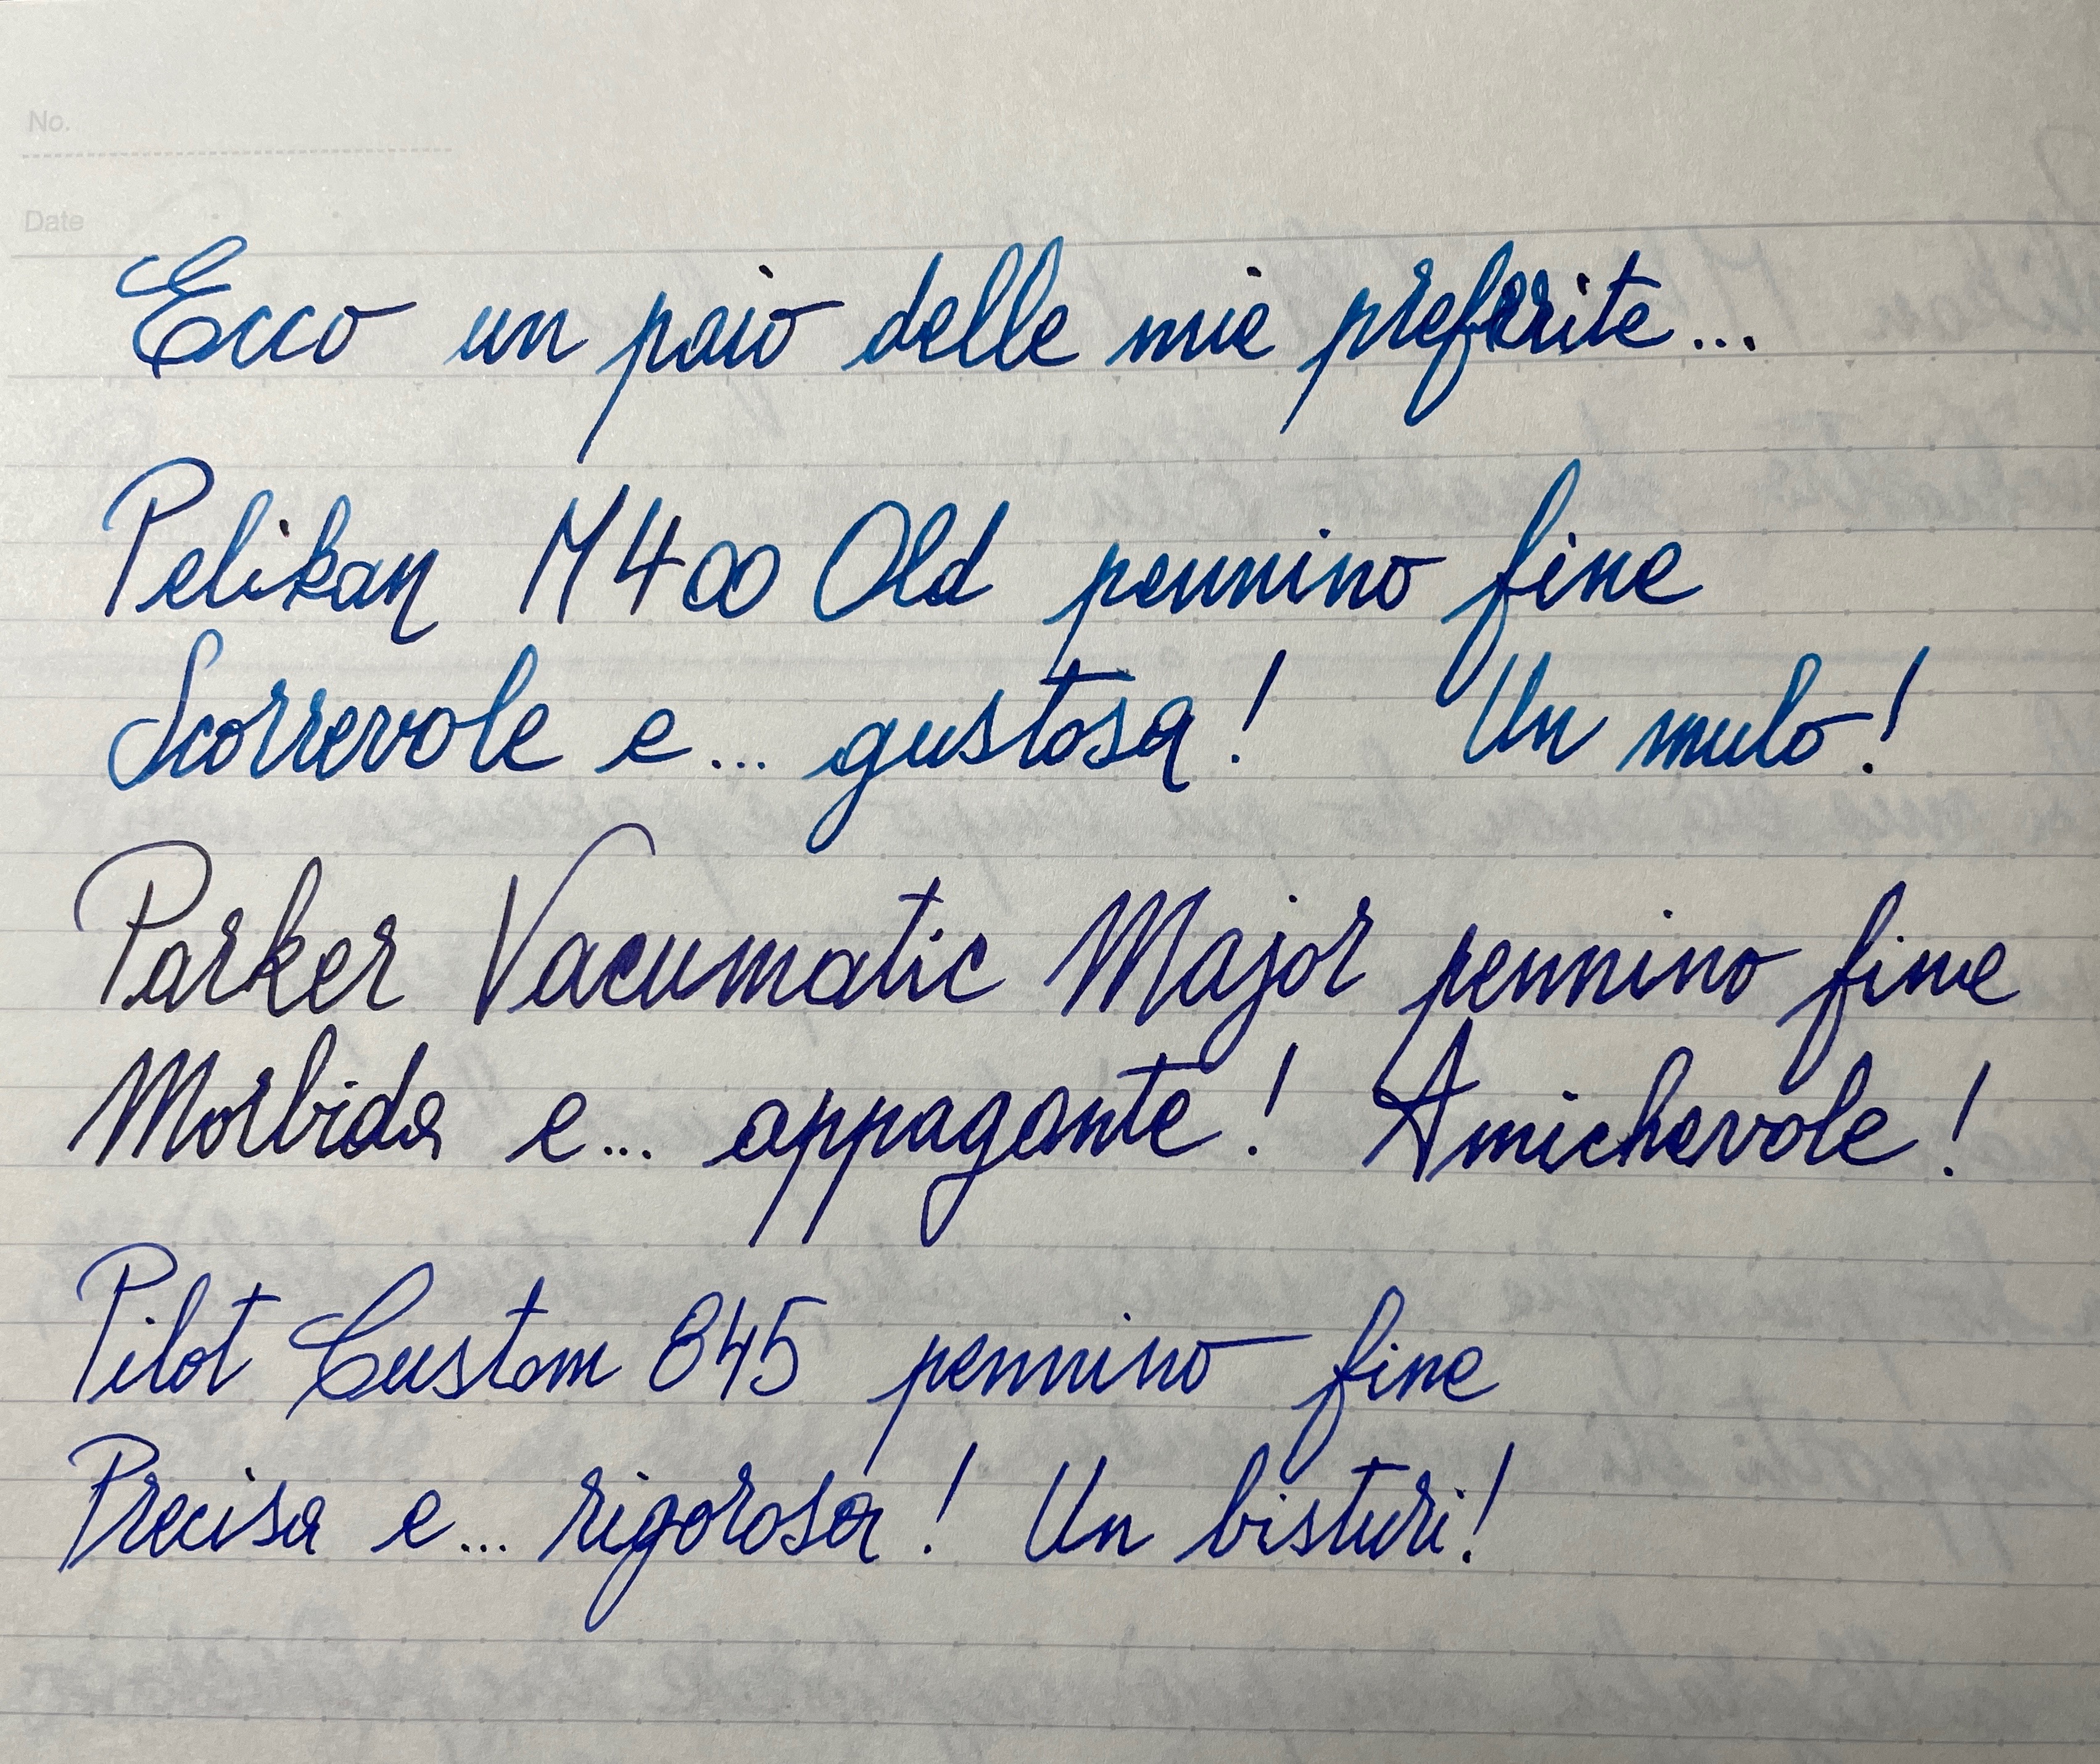 No.
Date
Ecco un paio delle mie preferite...
Pelikan M400 Old pennino fine
Scorrevole e... gustosa! Un mulo!
Parker Vacumatic Major pennino fine
Morbida e... appagante! Amichevole!
Pilot Custom 845 pennino fine
Precisa e... rigorosa! Un bisturi!